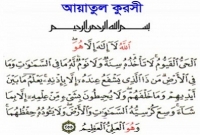 আয়াতুল কুরসী
بِسْمِ اللهِ الرَّحْمٰنِ الرَّحِيْمِ
اَللهُ لَآ اِلٰهَ اِلَّا هُوَ
الْحَىُّ الْقَيُّوْمُ لَا تَأْخُذُهٗ سِنَةٌ وَّلَا نَوْمٌ لَهٗ مَا فِى السَّمٰوٰتِ وَمَا
فِى الْاَرْضِ مَنْ ذَا الَّذِىْ يَشْفَعُ عِنْدَهٗٓ اِلَّا بِاِذْنِهٖ يَعْلَمُ مَا بَيْنَ
اَيْدِيْهِمْ وَمَا خَلْفَهُمْ وَلَا يُحِيْطُوْنَ بِشَىْءٍ مِّنْ عِلْمِهٖٓ اِلَّا بِمَا
شَآءَ وَسِعَ كُرْسِيُّهُ السَّمٰوٰتِ وَالْاَرْضَ وَلَا يَـُٔوْدُهٗ حِفْظُهُمَا
وَهُوَ الْعَلِىُّ الْعَظِيْمُ